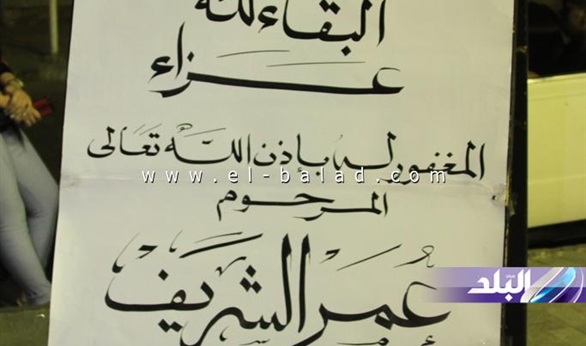 البقاء لله
عزاء
المغفور له بإذن الله تعالى
www.el-balad.com
المرحوم
عمر الشريف
البلد